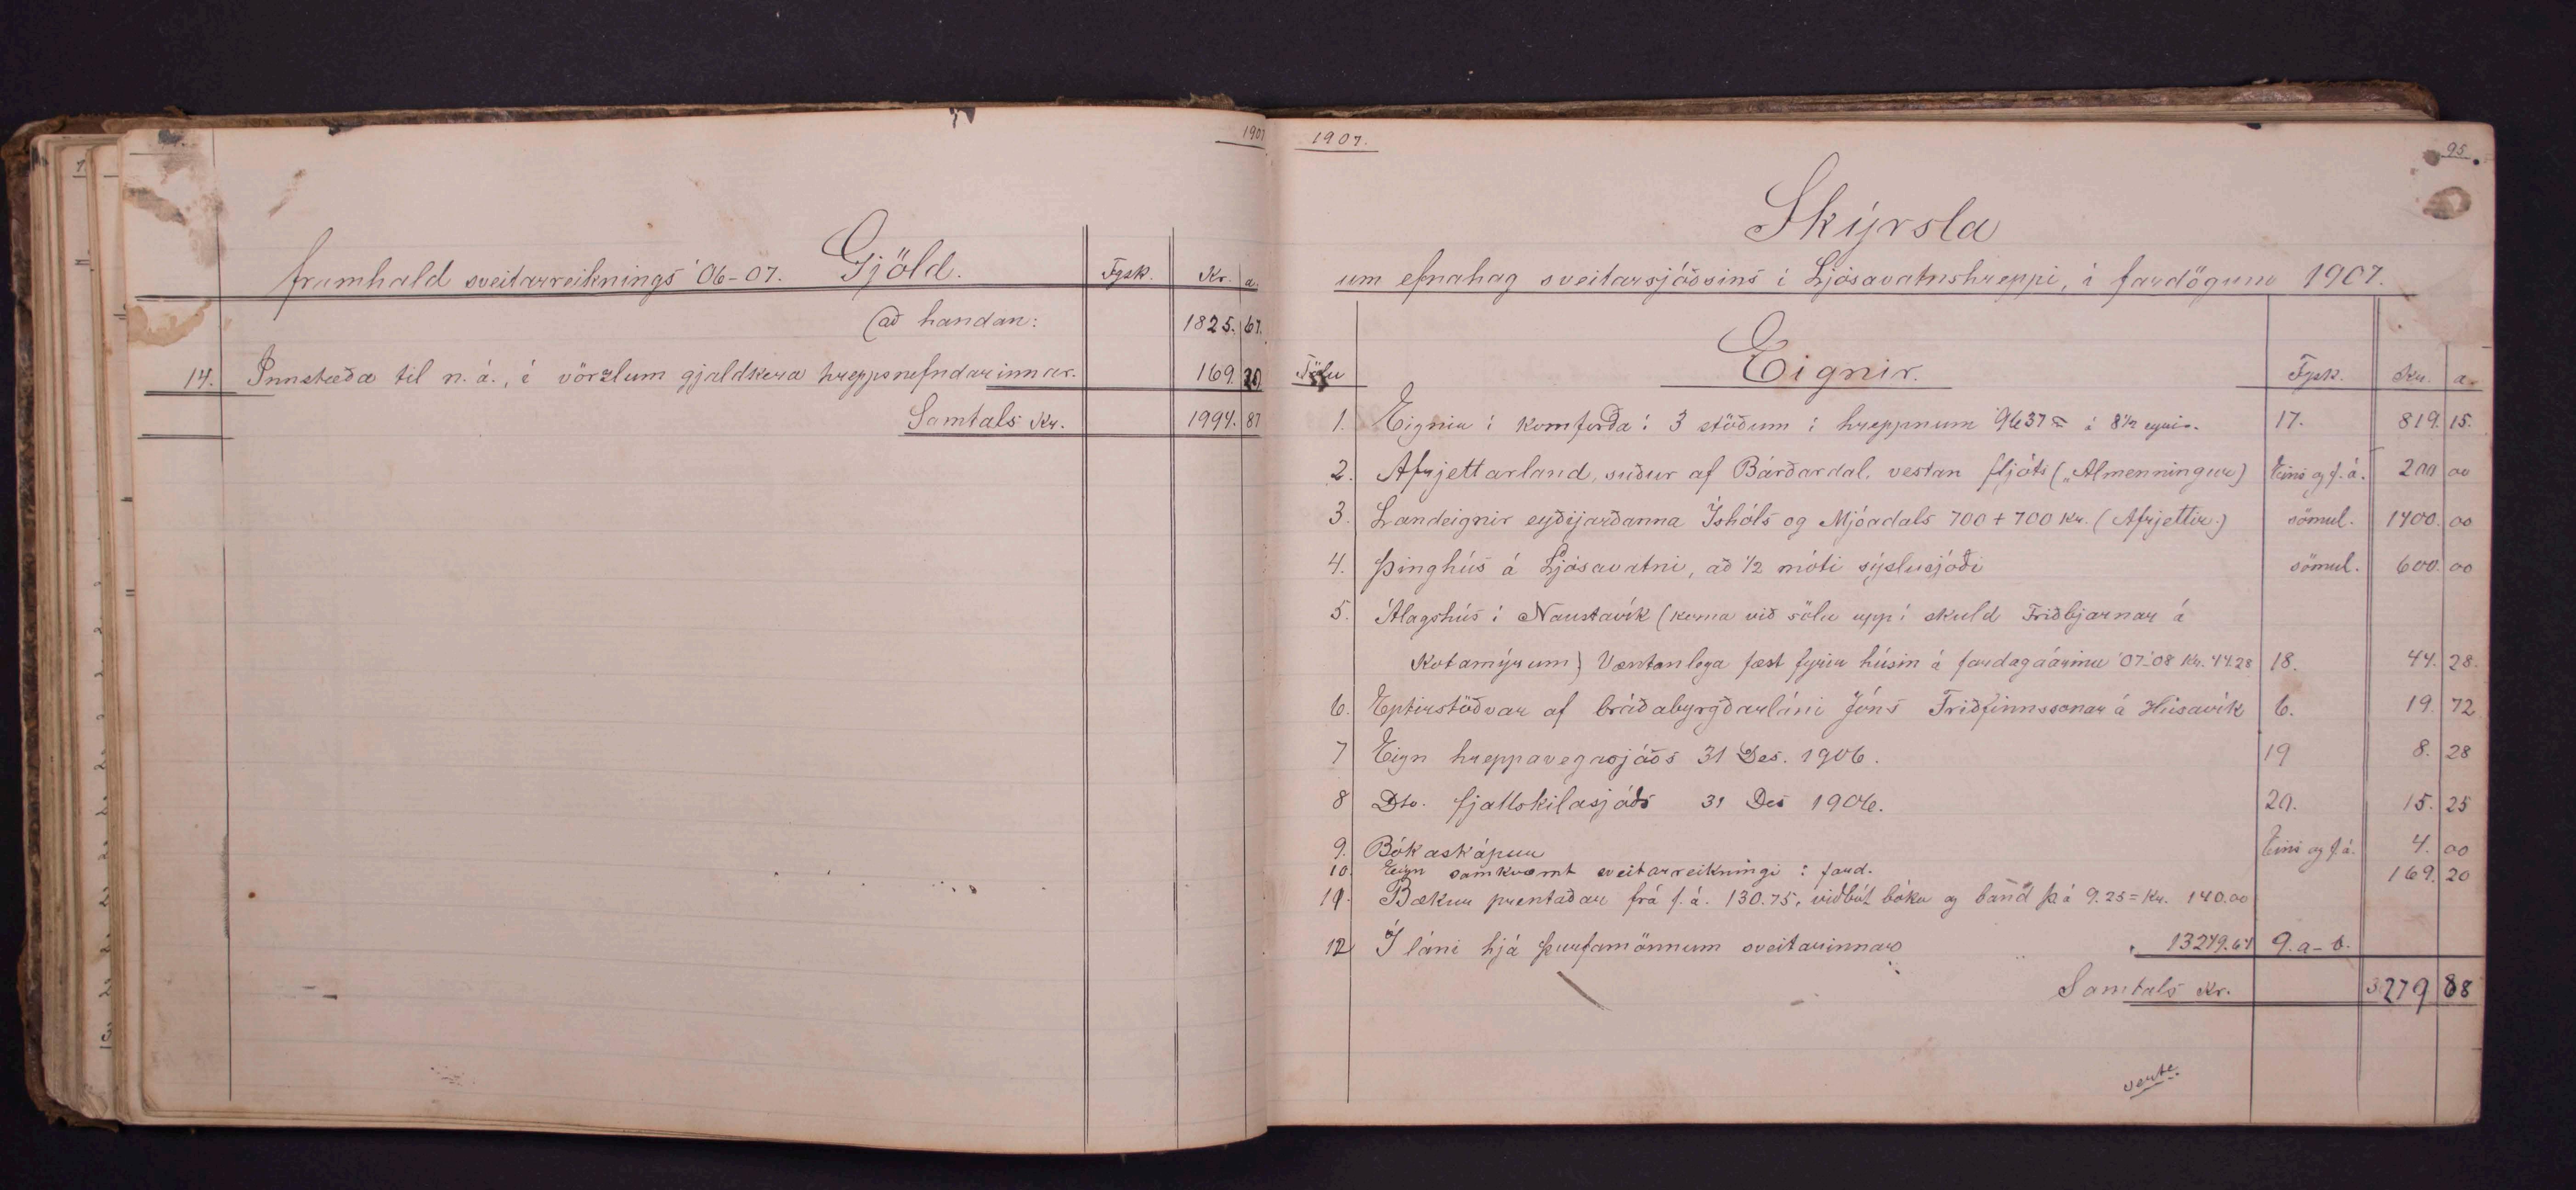 1907
framhald sveitarreiknings '06-07. Gjöld. Fgsk. Kr. a.
að handan: 1825. 67.
14. Innstæða til n. á., í vörzlum gjaldkera hreppsnefndarinnar. 169. 20
Samtals Kr. 1994. 87
1907.
95.
Skýrsla
um efnahag sveitarsjóðsins í Ljósavatnshreppi, í fardögum 1907.
Tölu Eignir. Fgsk. Kr. a.
1. Eignir í kornforða í 3 stöðum í hreppnum 9637 ℔ á 8½ eyrir. 17. 819. 15.
2. Afrjettarland, suður af Bárðardal, vestan fljóts („Almenningur) Eins og f. á. 200 00
3. Landeignir eyðijarðanna Íshóls og Mjóadals 700 + 700 Kr. (Afrjettir.) sömul. 1400. 00
4. Þinghús á Ljósavatni, að 1/2 móti sýslusjóði sömul. 600. 00
5. Álagshús í Naustavík (koma við sölu upp í skuld Friðbjarnar á
Kotamýrum) Væntanlega fæst fyrir húsin á fardagaárinu '07-'08 Kr. 44.28 18. 44. 28.
6. Eptirstöðvar af bráðabyrgðarláni Jóns Friðfinnssonar á Húsavík 6. 19. 72
7 Eign hreppavegasjóðs 31 Des. 1906. 19 8. 28
8 Dto. fjallskilasjóðs 31 Des 1906. 20. 15. 25
9. Bókaskápur Eins og f. á. 4. 00
10. Eign samkvæmt sveitarreikningi í fard. 169. 20
11. Bækur prentaðar frá f. á. 130.75, viðbót bóka og band þ á 9.25 = Kr. 140.00
12 Í láni hjá þurfamönnum sveitarinnar 13279.67 9. a-b.
Samtals Kr. 3279 88
verte.